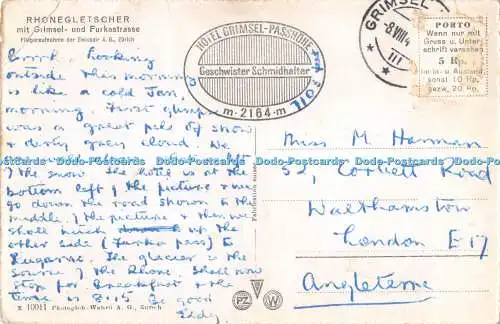 RHONEGLETSCHER
mit Grimsel- und Furkastrasse
Fliegeraufnahme der Swissair A. G., Zürich
HOTEL GRIMSEL-PASSHÖHE
Geschwister Schmidhalter
m · 2164 · m
GRIMSEL
8 VIII 4
III
PORTO
Wenn nur mit
Gruss u. Unter
schrift versehen
5 Rp.
im In- u. Ausland
sonst 10 Rp.
bezw. 20 Rp.
Looking
outside this morning
is like a cold Jan.
morning. First glimpse
was a great pile of snow
& dirty grey cloud. We
left
the snow. The hotel is at the
bottom left of the picture & we
go down the road shown to the
middle of the picture & then we
shall up the
other side (Furka pass) to
Lugarno. The glacier is the
source of the Rhone. Shall now
stop for breakfast & the
time is 8.15 Be good
Eddy
Miss M Harman
52, Corbett Road
Walthamstow
London E17
Angleterre
x 10011 Photoglob-Wehrli A. G., Zürich
PZ
W